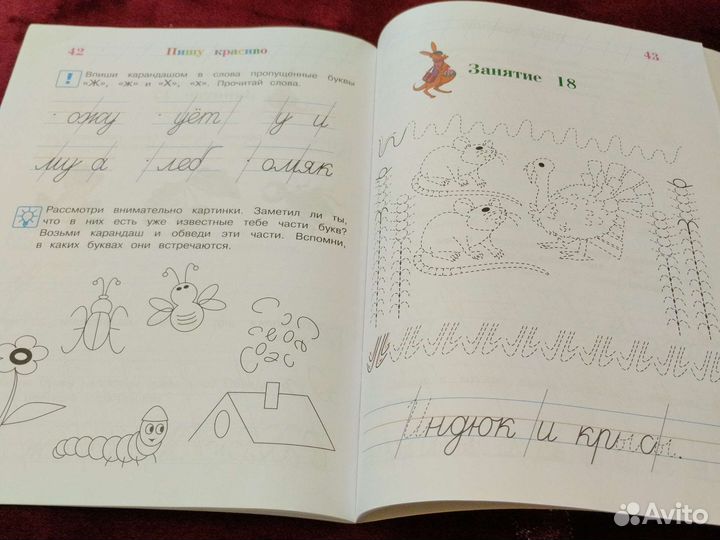 42 Пишу красиво
Впиши карандашом в слова пропущенные буквы
«Ж», «ж» и «Х», «х». Прочитай слова.
ожу уёт у и
му а леб омяк
Рассмотри внимательно картинки. Заметил ли ты,
что в них есть уже известные тебе части букв?
Возьми карандаш и обведи эти части. Вспомни,
в каких буквах они встречаются.
43
Занятие 18
Индюк и крысы.
Avito